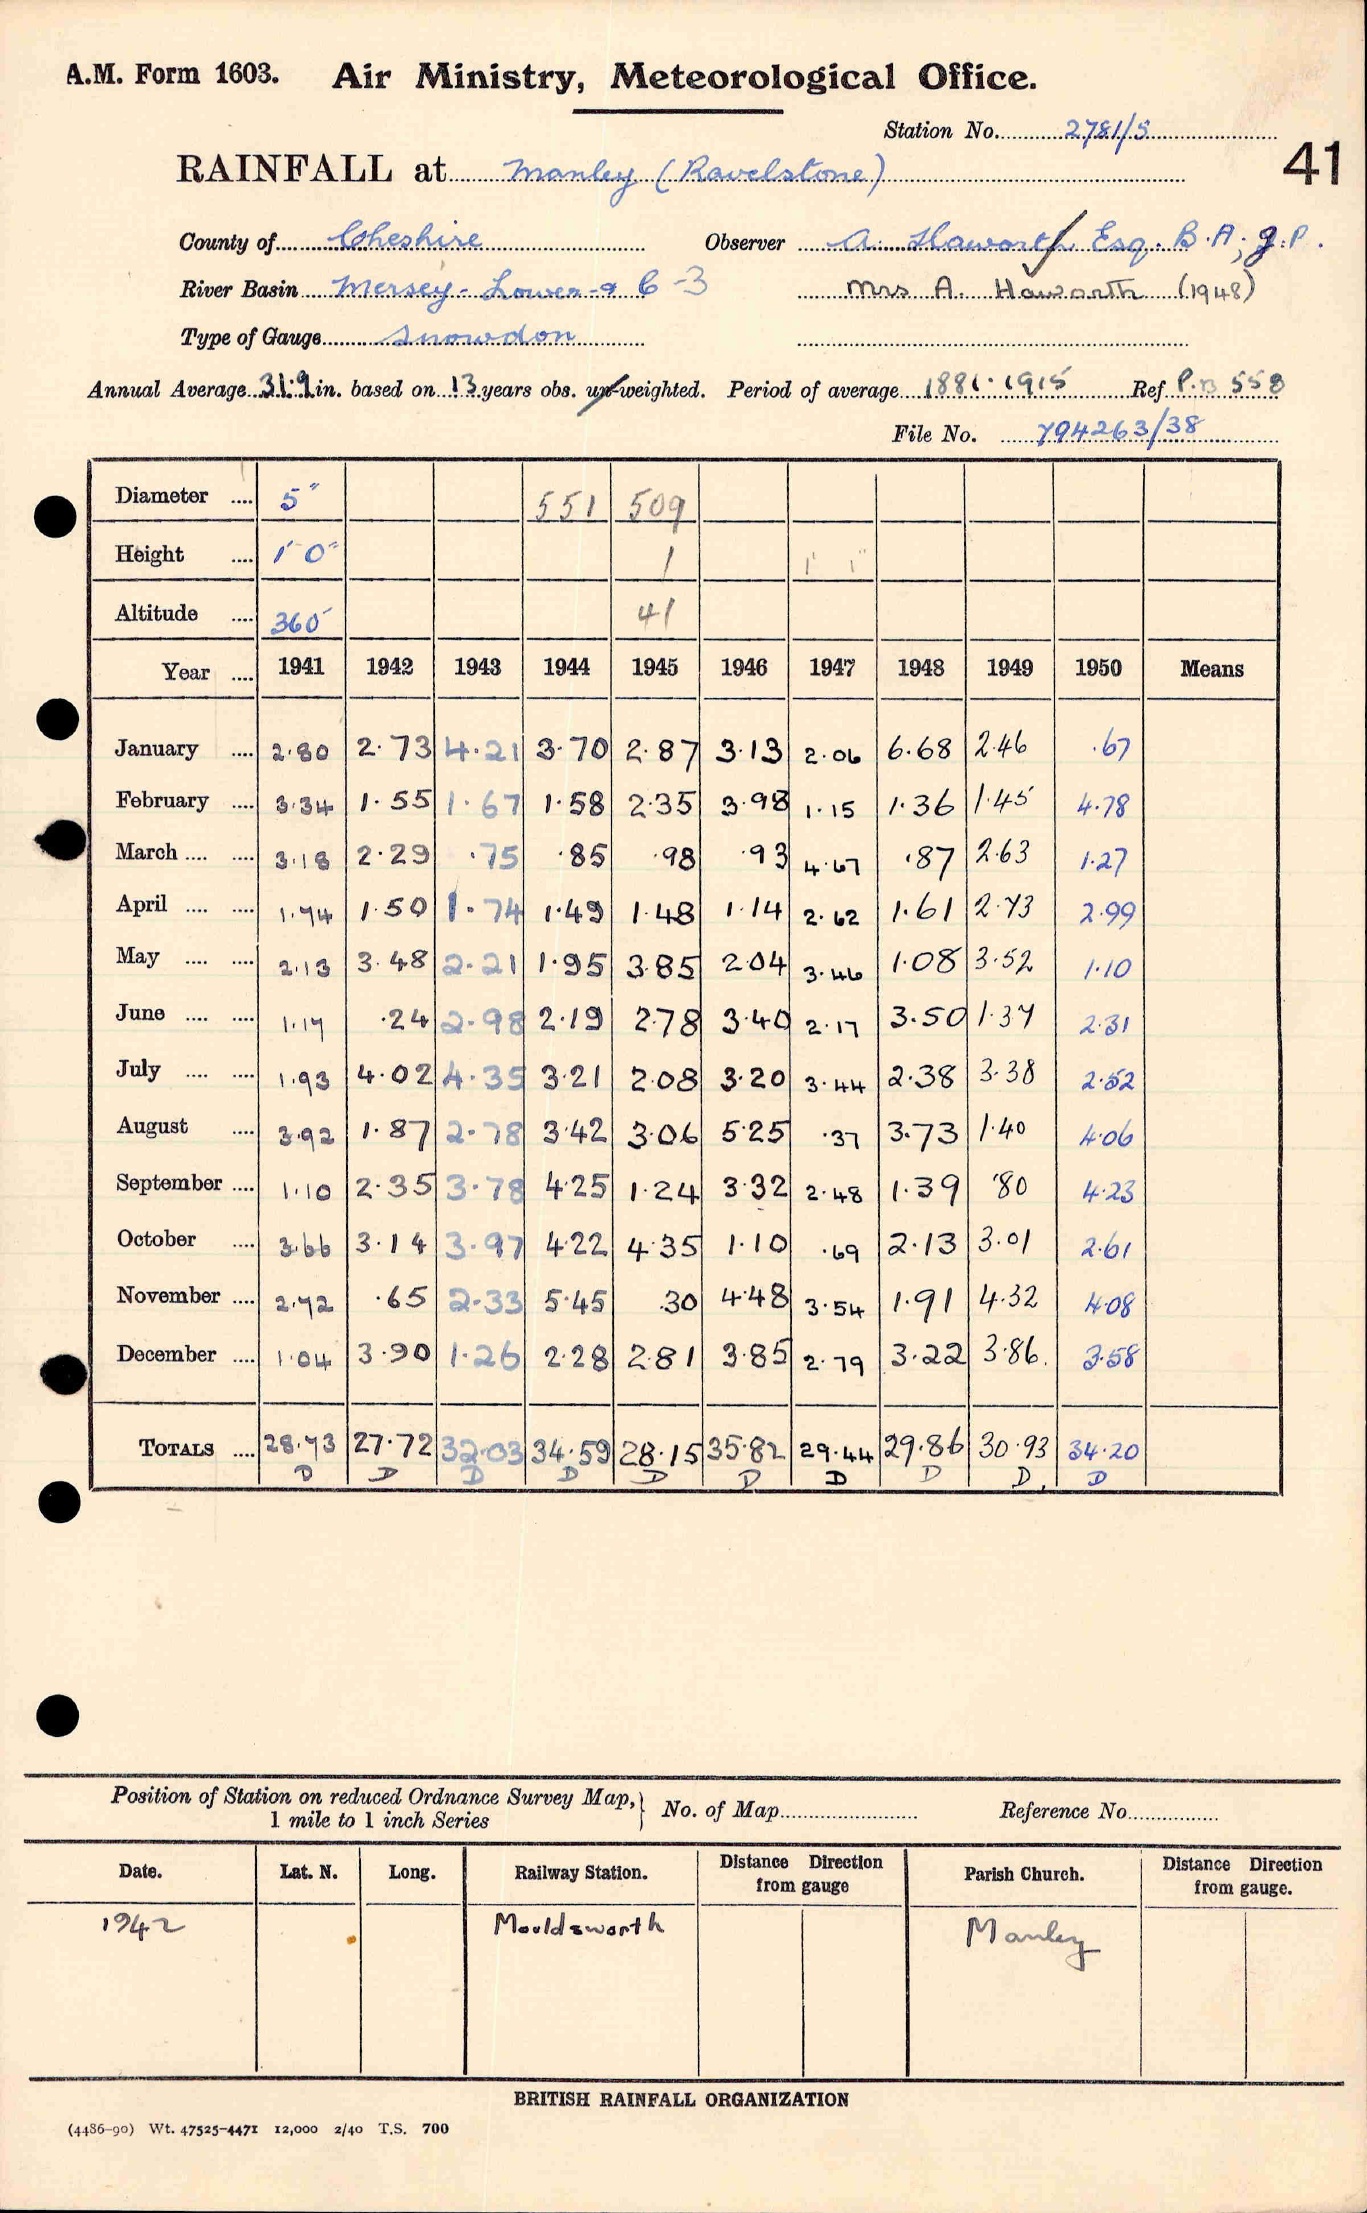 A.M. Form 1603. Air Ministry, Meteorological Office.
Station No. 2781/5
41
RAINFALL at Manley (Ravelstone)
County of Cheshire Observer A. Haworth Esq. B.A; J.P.
River Basin Mersey - Lower C-3 Mrs A. Haworth (1948)
Type of Gauge Snowdon
Annual Average 31.9 in. based on 13 years obs. un-weighted. Period of average 1881-1915 Ref P.B 558
File No. 794263/38
Diameter .... 5" 551 509
Height .... 1' 0" 1 1' 1"
Altitude .... 360' 41
Year .... 1941 1942 1943 1944 1945 1946 1947 1948 1949 1950 Means
January .... 2.80 2.73 4.21 3.70 2.87 3.13 2.06 6.68 2.46 .67
February .... 3.34 1.55 1.67 1.58 2.35 3.98 1.15 1.36 1.45 4.78
March .... .... 3.18 2.29 .75 .85 .98 .93 4.67 .87 2.63 1.27
April .... .... 1.74 1.50 1.74 1.49 1.48 1.14 2.62 1.61 2.73 2.99
May .... .... 2.13 3.48 2.21 1.95 3.85 2.04 3.46 1.08 3.52 1.10
June .... .... 1.17 .24 2.98 2.19 2.78 3.40 2.17 3.50 1.37 2.31
July .... .... 1.93 4.02 4.35 3.21 2.08 3.20 3.44 2.38 3.38 2.52
August .... 3.92 1.87 2.78 3.42 3.06 5.25 .37 3.73 1.40 4.06
September .... 1.10 2.35 3.78 4.25 1.24 3.32 2.48 1.39 .80 4.23
October .... 3.66 3.14 3.97 4.22 4.35 1.10 .69 2.13 3.01 2.61
November .... 2.72 .65 2.33 5.45 .30 4.48 3.54 1.91 4.32 4.08
December .... 1.04 3.90 1.26 2.28 2.81 3.85 2.79 3.22 3.86. 3.58
TOTALS .... 28.73 27.72 32.03 34.59 28.15 35.82 29.44 29.86 30.93 34.20
D D D D D D D D D. D
Position of Station on reduced Ordnance Survey Map, 1 mile to 1 inch Series } No. of Map Reference No.
Date. Lat. N. Long. Railway Station. Distance Direction from gauge Parish Church. Distance Direction from gauge.
1942 Mouldsworth Manley
BRITISH RAINFALL ORGANIZATION
(4486-90) Wt. 47525-4471 12,000 2/40 T.S. 700